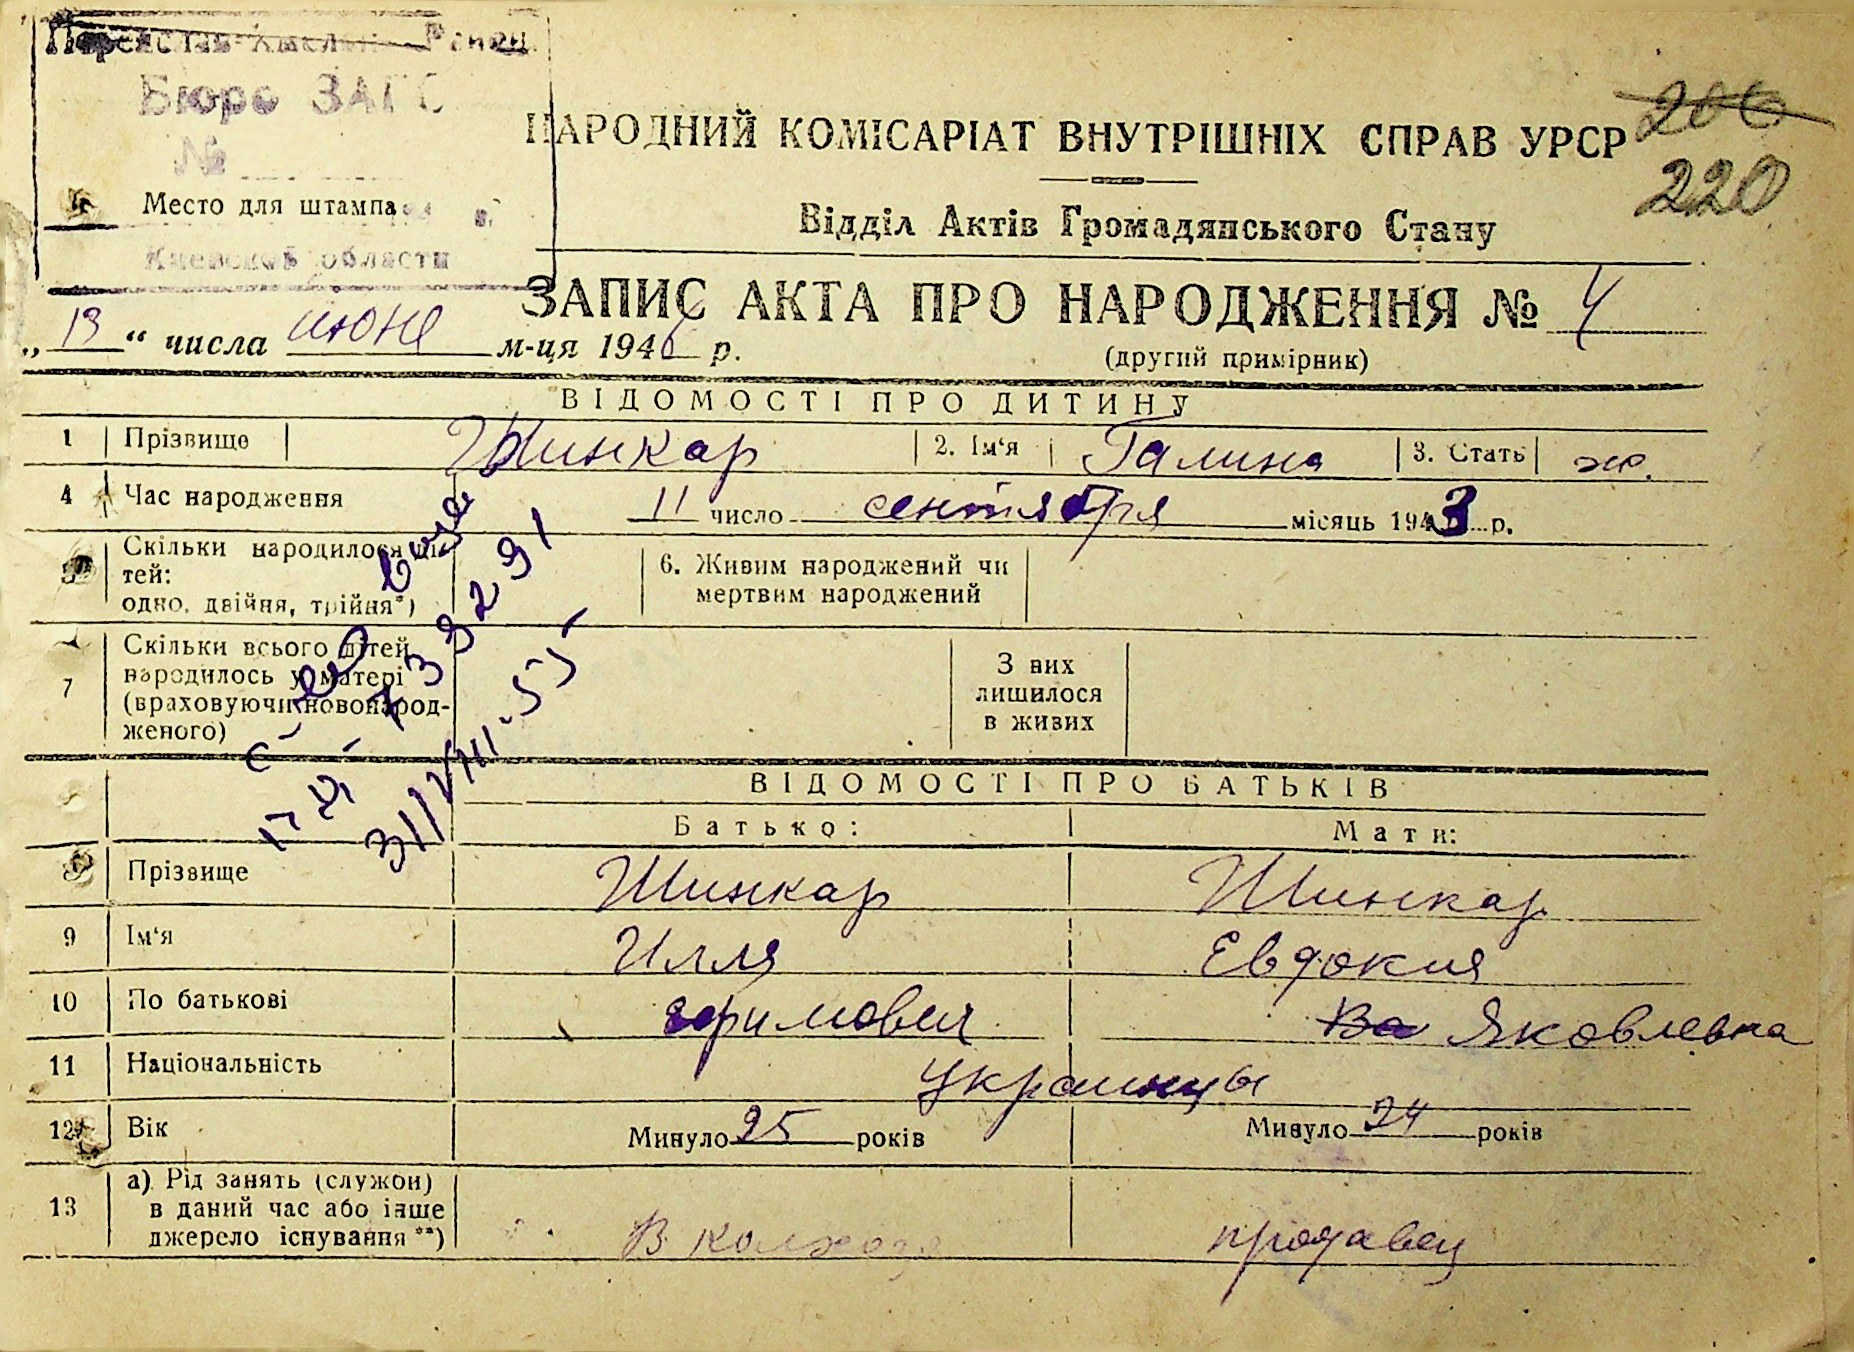 Переяслав-Хмельн. Район
Бюро ЗАГС
№
Место для штампа
Киевской области
206
220
НАРОДНИЙ КОМІСАРІАТ ВНУТРІШНІХ СПРАВ УРСР
Відділ Актів Громадянського Стану
ЗАПИС АКТА ПРО НАРОДЖЕННЯ № 4
„ 13 “ числа июня м-ця 1946 р.
(другий примірник)
ВІДОМОСТІ ПРО ДИТИНУ
1 Прізвище Шинкар 2. Ім'я Галина 3. Стать ж.
4 Час народження 11 число сентября місяць 1943 р.
5 Скільки народилося ді-
тей:
одно, двійня, трійня*)
6. Живим народжений чи
мертвим народжений
7 Скільки всього дітей
народилось у матері
(враховуючи новонарод-
женого)
З них
лишилося
в живих
31/VIII-55
ВІДОМОСТІ ПРО БАТЬКІВ
Батько: Мати:
8 Прізвище Шинкар Шинкар
9 Ім'я Илля Евдокия
10 По батькові Ефимович Ва Яковлевна
11 Національність украинцы
12 Вік Минуло 25 років Минуло 24 років
13 а) Рід занять (служби)
в даний час або інше
джерело існування **)
В колхозе продавец